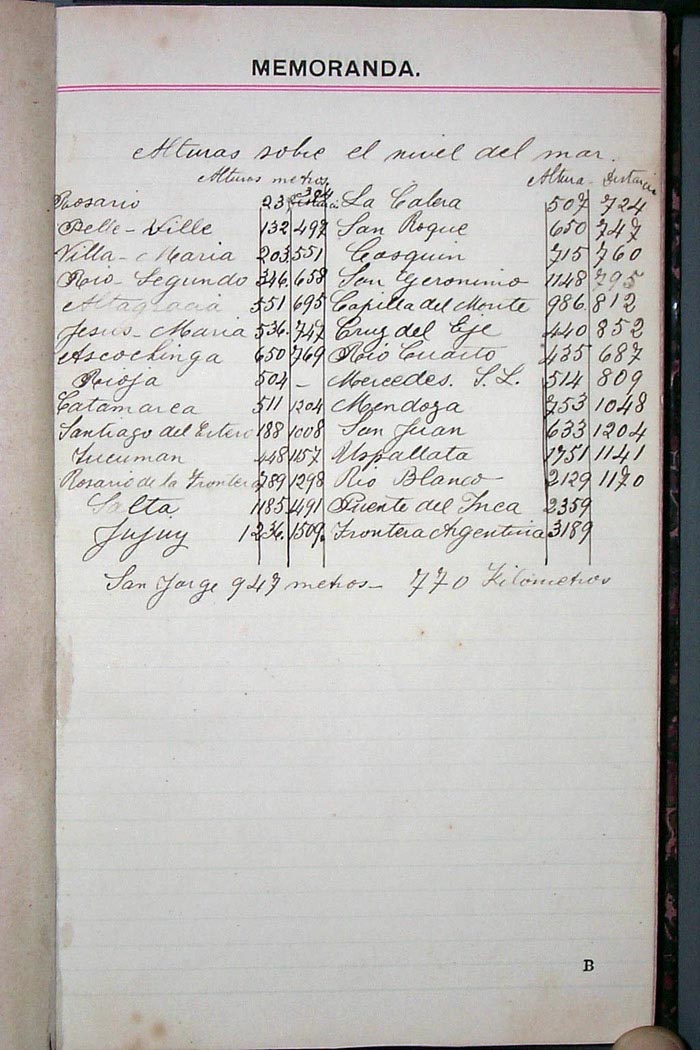 MEMORANDA.
Alturas sobre el nivel del mar.
Alturas metros Altura - Distancia
Rosario 23 304 Distancia La Calera 507 724
Belle-Ville 132 497 San Roque 650 747
Villa-Maria 203 551 Cosquin 715 760
Rio-Segundo 346 658 San Geronimo 1148 795
Altagracia 551 695 Capilla del Monte 986 812
Jesus-Maria 536 747 Cruz del Eje 440 852
Ascochinga 650 769 Rio Cuarto 435 687
Rioja 504 - Mercedes. S.L. 514 809
Catamarca 511 1204 Mendoza 753 1048
Santiago del Estero 188 1008 San Juan 633 1204
Tucuman 448 1157 Uspallata 1751 1141
Rosario de la Frontera 789 1298 Rio Blanco 2129 1170
Salta 1185 1491 Puente del Inca 2359
Jujuy 1236. 1509. Frontera Argentina 3189
San Jorge 947 metros - 770 Kilómetros
B